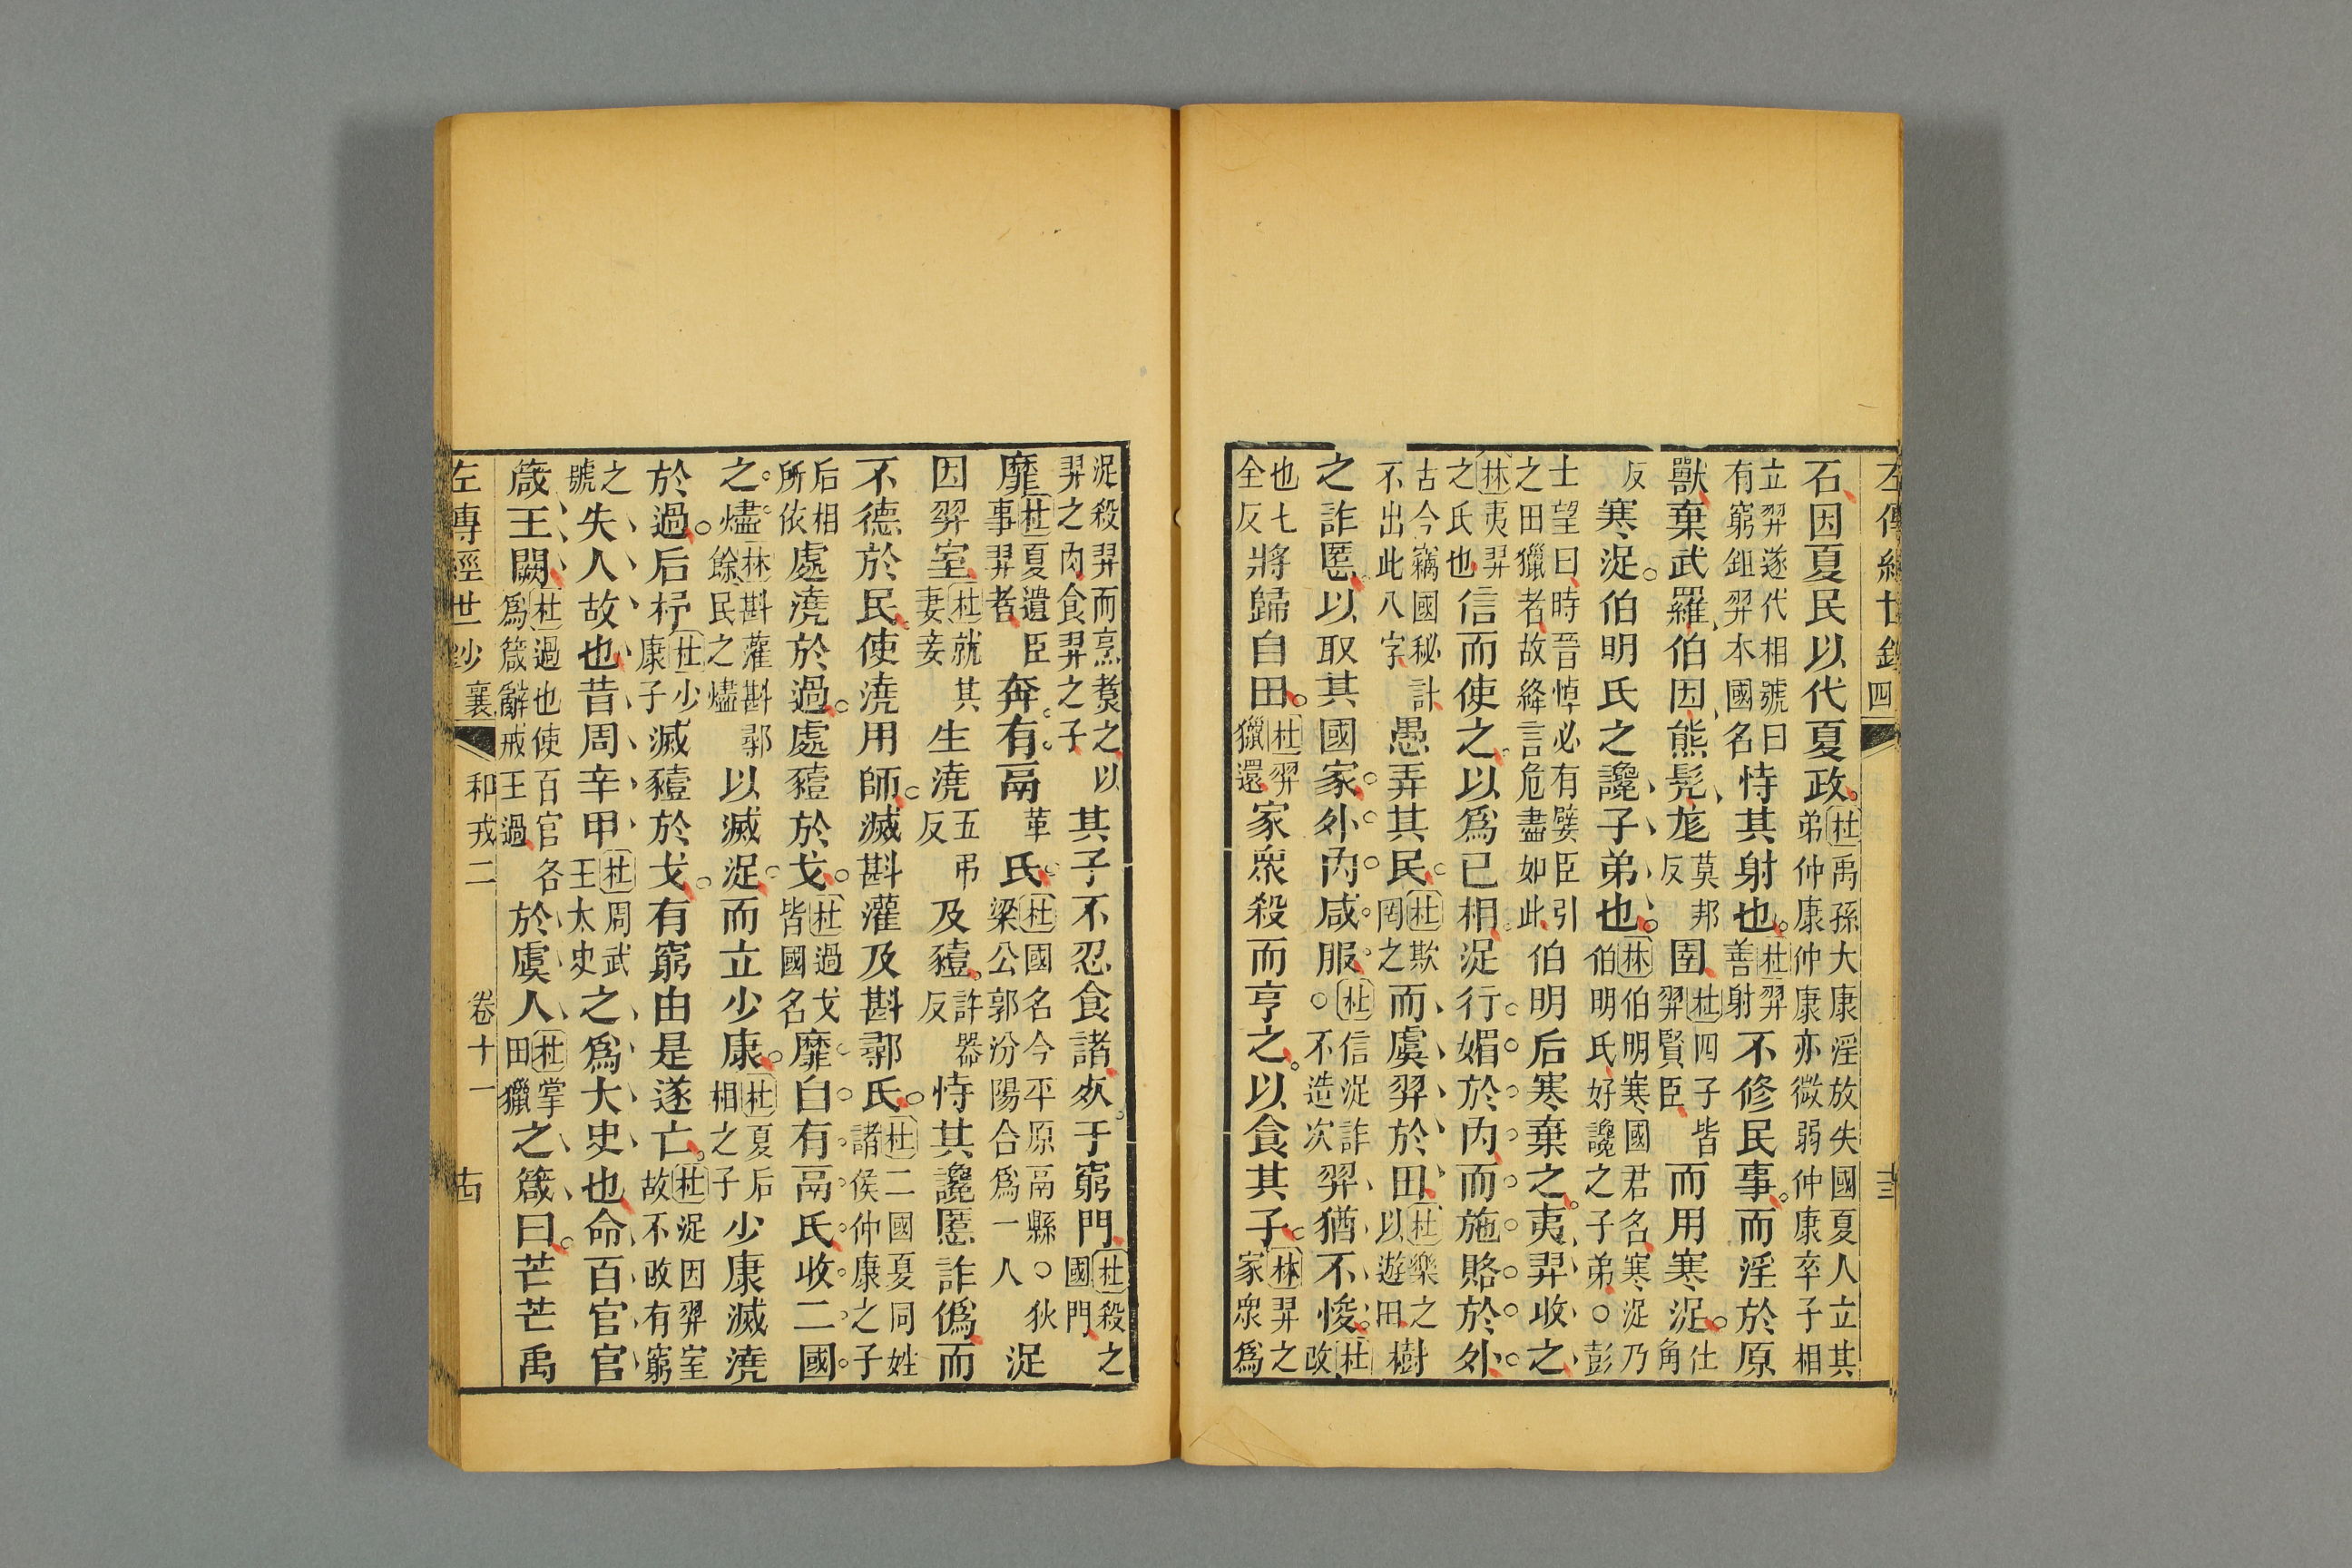 左傳經世鈔 四 十三
石因夏民以代夏政。杜禹孫大康淫放失國夏人立其弟仲康仲康亦微弱仲康卒子相
立羿遂代相號曰有窮鉏羿本國名恃其射也。杜羿善射不修民事。而淫於原
獸棄武羅伯因熊髡尨莫邦反圉杜四子皆羿賢臣而用寒浞。仕角
反寒浞。伯明氏之讒子弟也。林伯明寒國君名寒浞乃伯明氏好讒之子弟○彭
士望曰時晉悼必有嬖臣引之田獵者故絳言危盡如此伯明后寒棄之。夷羿收之
林夷羿之氏也信而使之。以爲已相。浞行媚於內而施賂於外
古今竊國秘計不出此八字愚弄其民。杜欺罔之而虞羿於田杜樂之以遊田樹
之詐慝。以取其國家。外內咸服。杜信浞詐○不造次羿猶不悛。杜改
也七全反將歸自田。杜羿獵還家衆殺而亨之。以食其子。林羿之家衆爲
浞殺羿而烹煑之以羿之肉食羿之子其子不忍食諸死。于窮門杜殺之國門
靡杜夏遺臣事羿者奔。有。鬲革氏。杜國名今平原鬲縣○狄梁公郭汾陽合爲一人浞
因羿室杜就其妻妾生澆五弔反及豷。許器反恃其讒慝詐僞而
不德於民。使澆用師。滅斟灌及斟鄩氏。杜二國夏同姓諸侯仲康之子
后相所依處澆於過。處豷於戈。杜過戈皆國名靡自有鬲氏收二國
之燼。林斟灌斟鄩餘民之燼以滅浞。而立少康。杜夏后相之子少康滅澆
於過。后杼杜少康子滅豷於戈。有窮由是遂亡。杜浞因羿室故不改有窮
之號失人故也昔周辛甲杜周武王太史之爲大史也命百官官
箴王闕杜過也使百官各爲箴辭戒王過於虞人杜掌田獵之箴曰。芒芒禹
左傳經世鈔 襄 和戎二 卷十一 十四